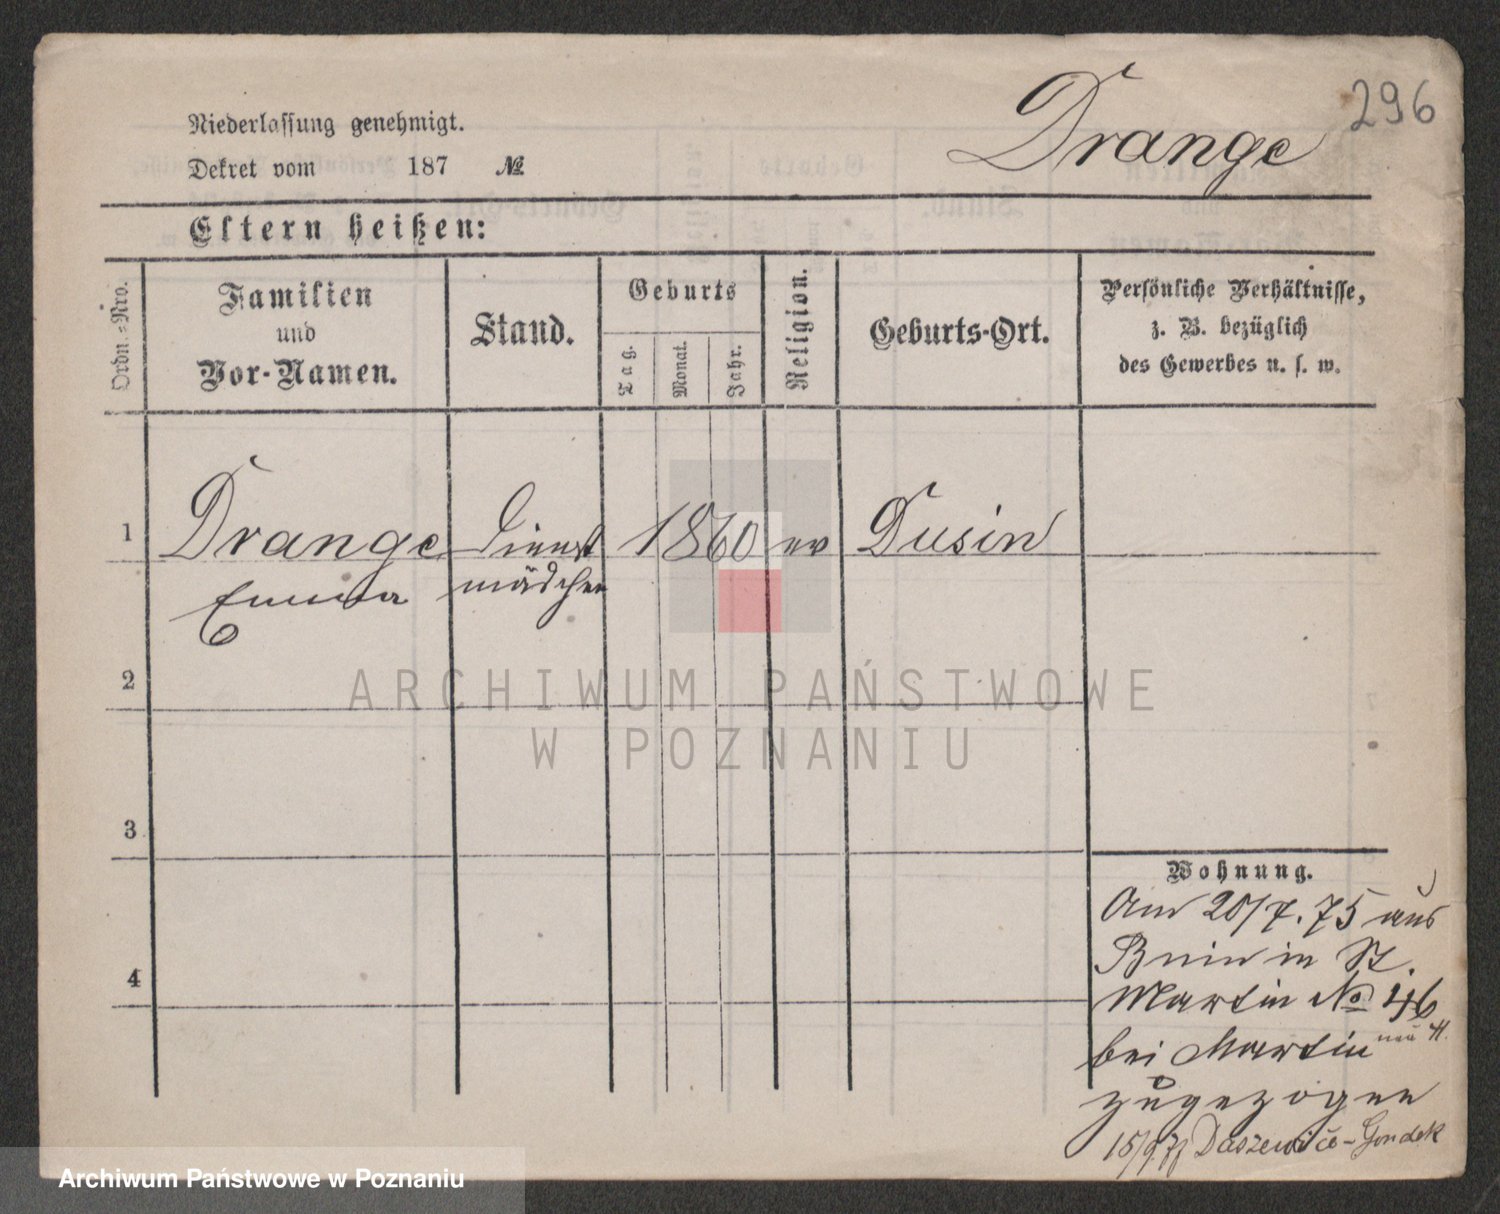 296
Drange
Niederlassung genehmigt.
Dekret vom 187 №
Eltern heißen:
Ordn.-Nro.
Familien
und
Vor-Namen.
Stand.
Geburts
Tag.
Monat.
Jahr.
Religion.
Geburts-Ort.
Persönliche Verhältnisse,
z. B. bezüglich
des Gewerbes u. s. w.
1 Drange Dienst 1860 ev Dusin
Emma mädchen
2
3
4
ARCHIWUM PAŃSTWOWE
W POZNANIU
Wohnung.
Am 20/7. 75 aus
Bnin in St.
Martin No 46
bei Martin neu
zugezogen
15/9 77 Daszewice - Gondek
Archiwum Państwowe w Poznaniu